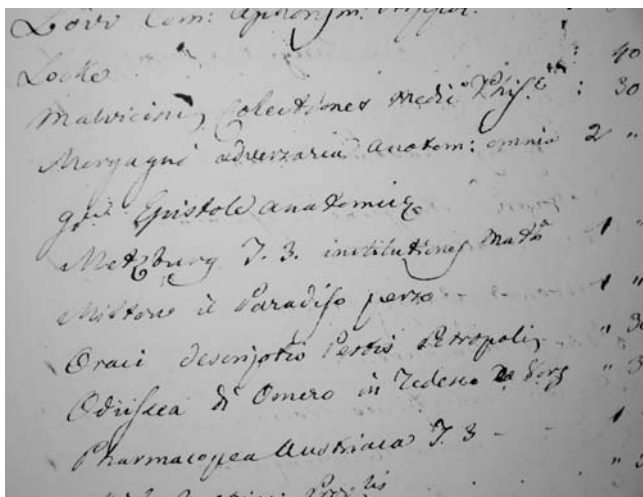 Locke : 40
Malvicini, Colectiones Medi Phis. : 30
Morgagni adverzaria Anatom: omnia 2 "
Epistole anatomicz
Metzburg T. 3. institutiones Mat. 1 "
Miltone il Paradiso perso - - 1 "
Oraei descriptio Pestis Petropoli, "
Odissea di Omero in Tedesco "
Pharmacopea Austriaca T. 3 - - 1